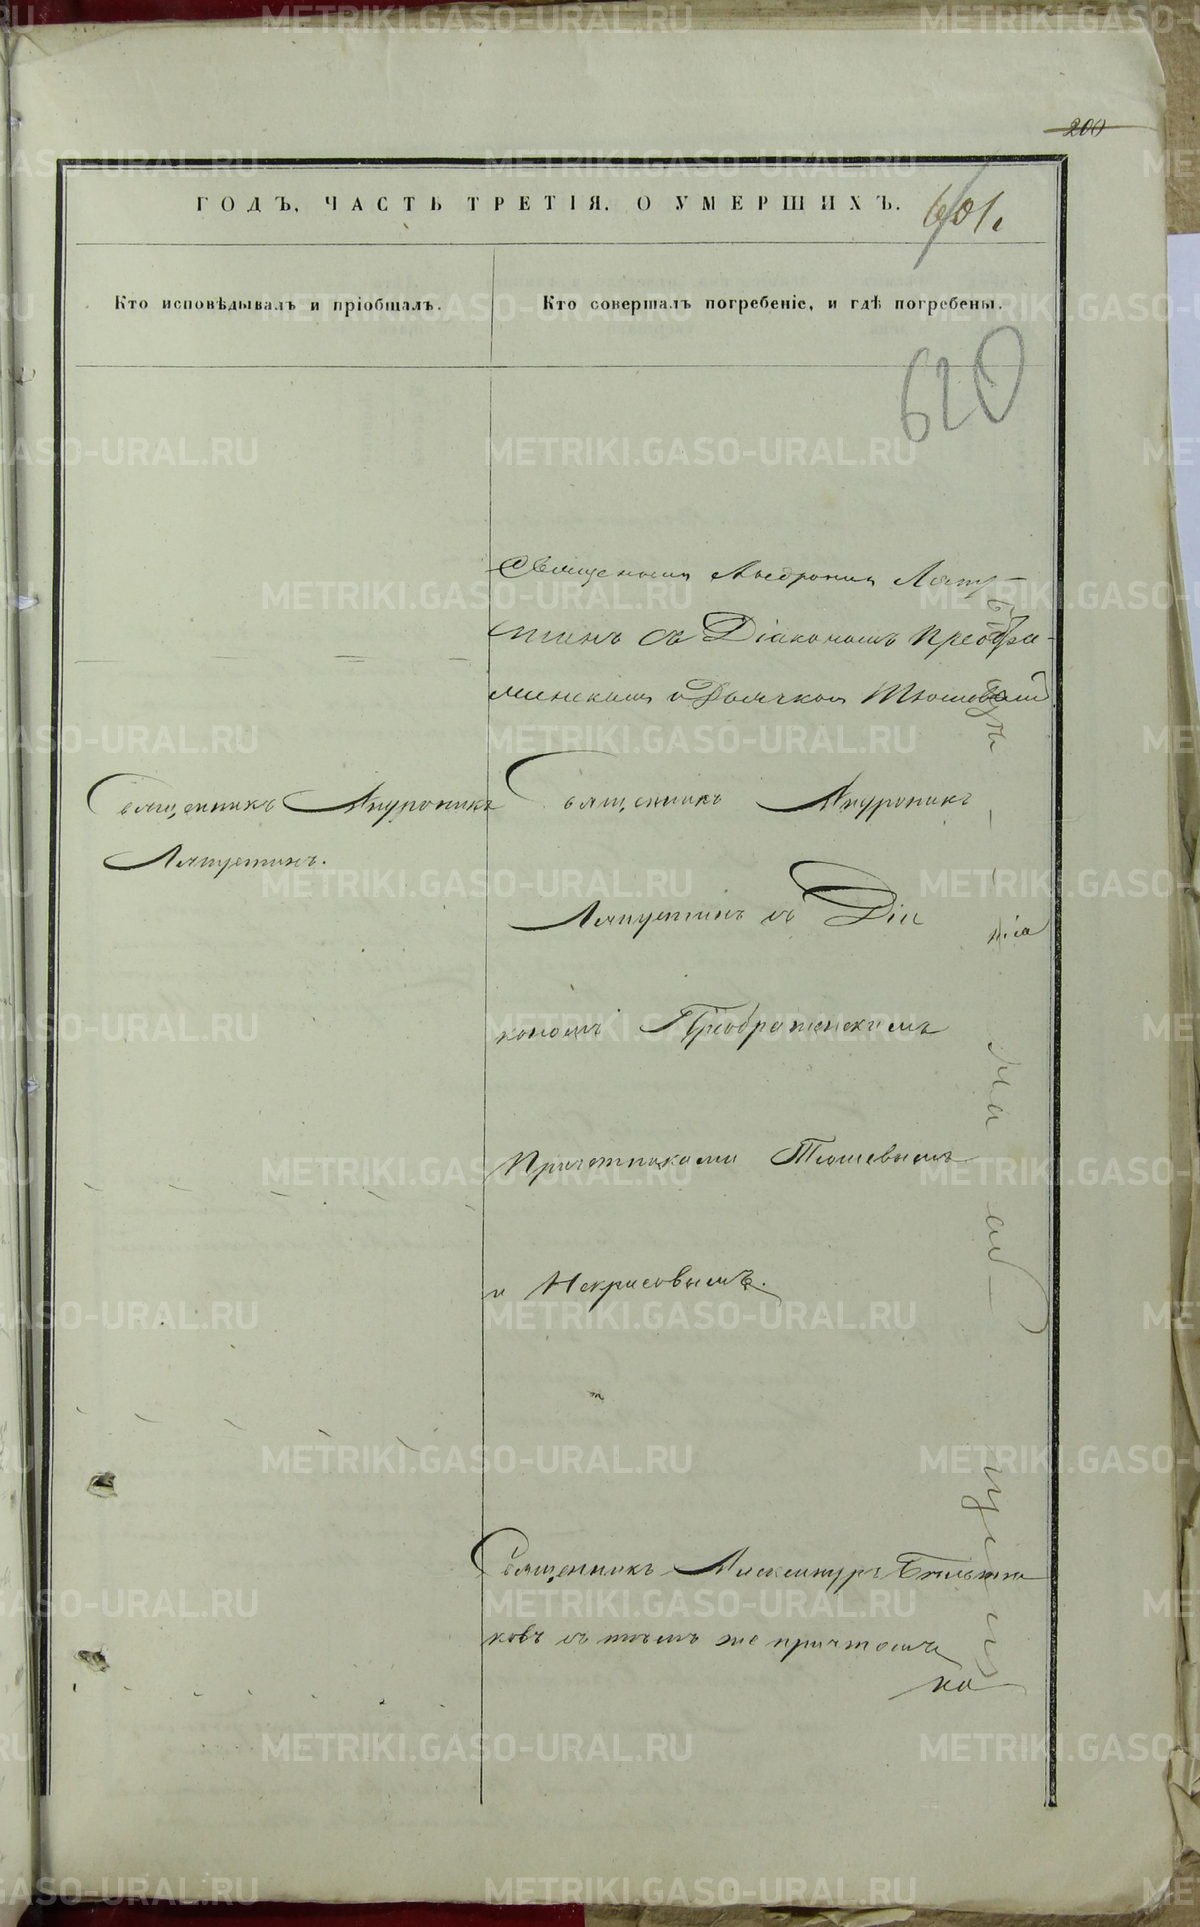 200
ГОДЪ, ЧАСТЬ ТРЕТІЯ. О УМЕРШИХЪ.
601.
Кто исповѣдывалъ и пріобщалъ.
Кто совершалъ погребеніе, и гдѣ погребены.
620
Священникъ Андроникъ Ляпу-
стинъ съ Діакономъ Преобра-
женскимъ и Дьячкомъ Тюшевымъ
Священникъ Андроникъ
Ляпустинъ.
Священникъ Андроникъ
Ляпустинъ съ Діа
кономъ Преображенскимъ
Причетниками Тюшевымъ
и Некрасовымъ.
Священникъ Александръ
ковъ съ тѣмъ же причтомъ
на
METRIKI.GASO-URAL.RU